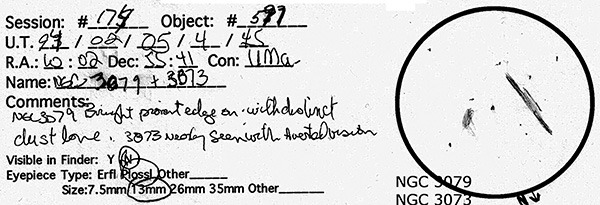 Session: #179 Object: #597
U.T. 97 / 02 / 05 / 4 / 45
R.A.: 10 : 02 Dec: 55 : 41 Con: UMa
Name: NGC 3079 + 3073
Comments:
NGC 3079 Bright edge on with distinct
dust lane. 3073 seen with Averted Vision
Visible in Finder: Y N
Eyepiece Type: Erfl Plossl Other
Size: 7.5mm 13mm 26mm 35mm Other
NGC 3079
NGC 3073
N